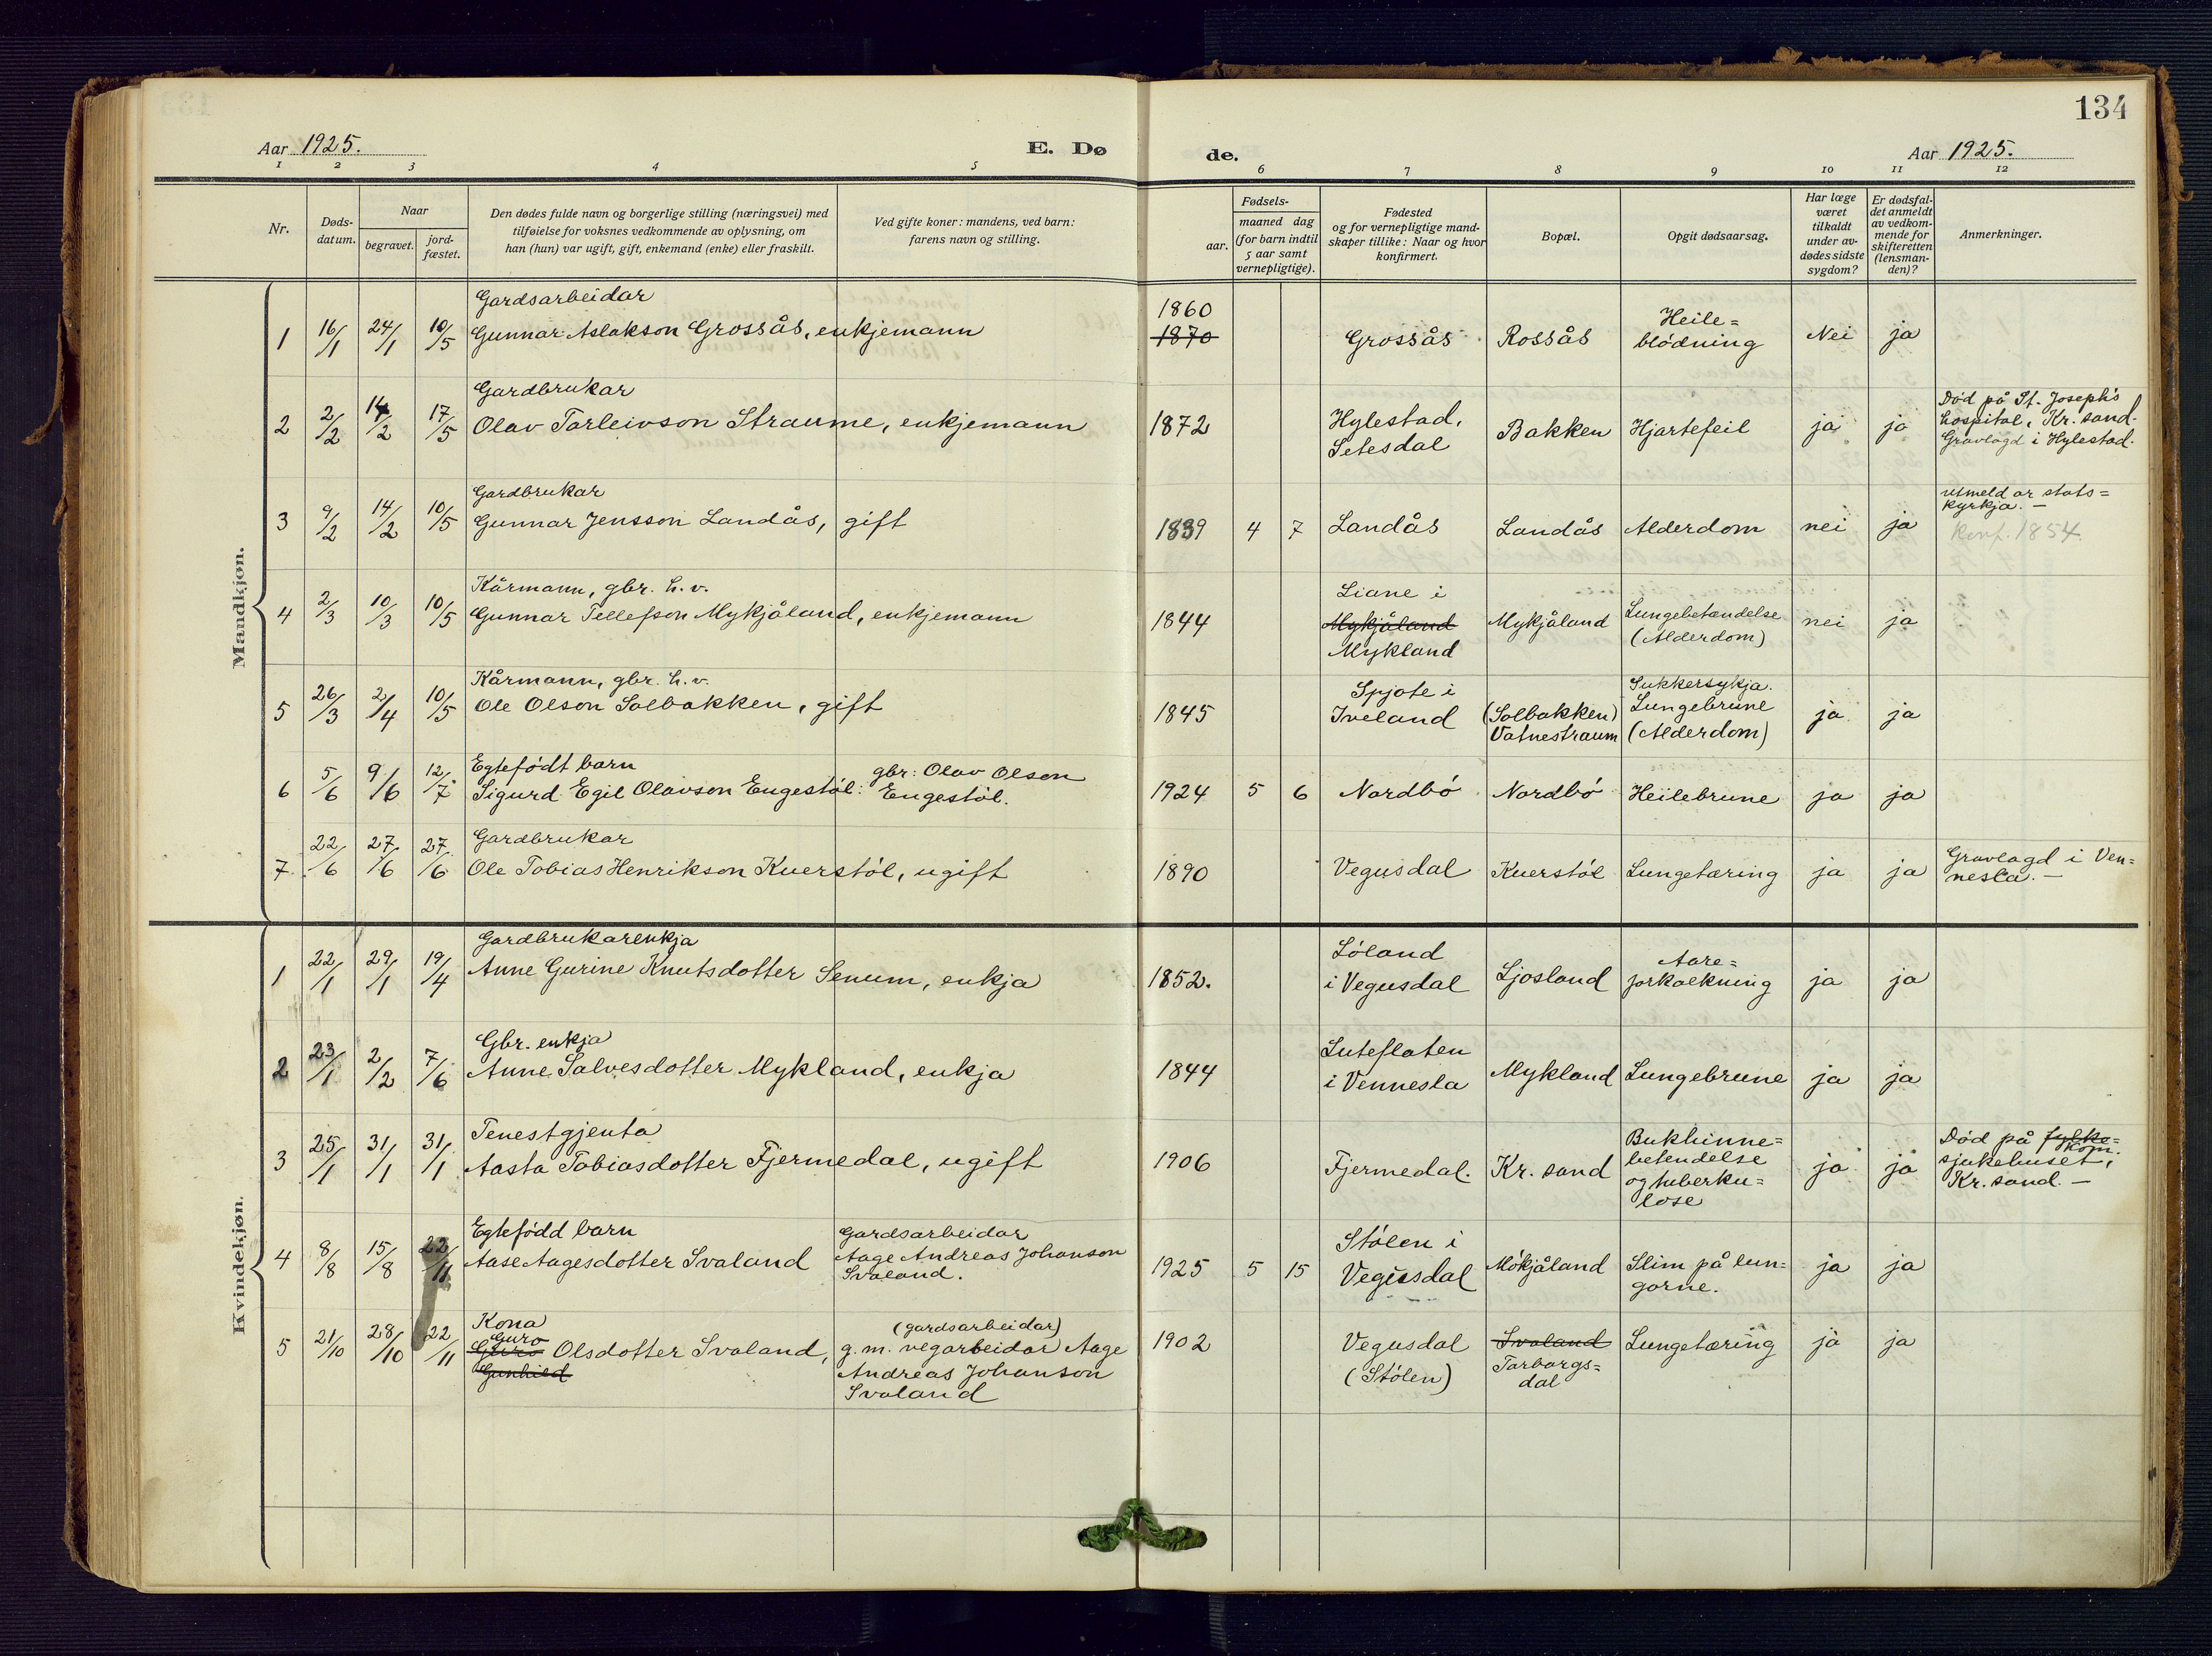 134
Aar 1925.
E. Dø
de.
Aar 1925.
1 2 3 4 5 6 7 8 9 10 11 12
Nr.
Døds-
datum.
Naar
begravet.
jord-
fæstet.
Den dødes fulde navn og borgerlige stilling (næringsvei) med
tilføielse for voksnes vedkommende av oplysning, om
han (hun) var ugift, gift, enkemand (enke) eller fraskilt.
Ved gifte koner: mandens, ved barn:
farens navn og stilling.
Fødsels-
aar.
maaned dag
(for barn indtil
5 aar samt
vernepligtige).
Fødested
og for vernepligtige mand-
skaper tillike: Naar og hvor
konfirmert.
Bopæl.
Opgit dødsaarsag.
Har læge
været
tilkaldt
under av-
dødes sidste
sygdom?
Er dødsfal-
det anmeldt
av vedkom-
mende for
skifteretten
(lensman-
den)?
Anmerkninger.
Mandkjøn.
Gardsarbeidar
1 16/1 24/1 10/5 Gunnar Aslakson Grossås, enkjemann
1860
1870
Grossås Rossås
Heile=
blödning
Nei ja
Gardbrukar
2 2/2 14/2 17/5 Olav Tarleivson Straume, enkjemann
1872
Hylestad,
Setesdal
Bakken Hjartefeil ja ja
Död på St. Josephs
hospital, Kr. sand.
Gravlagd i Hylestad.
Gardbrukar
3 9/2 14/2 10/5 Gunnar Jensson Landås, gift
1839 4 7 Landås Landås Alderdom nei ja
utmeld or stats=
kyrkja. —
Konf. 1854.
Kårmann, gbr. h. v.
4 2/3 10/3 10/5 Gunnar Tellefson Mykjåland, enkjemann
1844
Liane i
Mykjåland
Mykland
Mykjåland
Lungebetændelse
(Alderdom)
nei ja
Kårmann, gbr. h. v.
5 26/3 2/4 10/5 Ole Olson Solbakken, gift
1845
Spjote i
Iveland
(Solbakken)
Vatnestraum
Sukkersykja.
Lungebrune
(Alderdom)
ja ja
Egtefödt barn
6 5/6 9/6 12/7 Sigurd Egil Olavson Engestöl:
gbr: Olav Olson
Engestöl.
1924 5 6 Nordbö Nordbö Heilebrune ja ja
Gardbrukar
7 22/6 27/6 27/6 Ole Tobias Henrikson Kverstöl, ugift
1890 Vegusdal Kverstöl Lungetæring ja ja
Gravlagd i Ven=
nesla. —
Kvindekjøn.
Gardbrukarenkja
1 22/1 29/1 19/4 Anne Gurine Knutsdotter Senum, enkja
1852.
Löland
i Vegusdal
Ljosland
Aare=
forkalkning
ja ja
Gbr. enkja
2 23/1 2/2 7/6 Anne Salvesdotter Mykland, enkja
1844
Luteflaten
i Vennesla
Mykland Lungebrune ja ja
Tenestgjenta
3 25/1 31/1 31/1 Aasta Tobiasdotter Fjermedal, ugift
1906 Fjermedal. Kr. sand
Bukhinne=
betendelse
og tuberku=
lose
ja ja
Död på fylke=
Kom.
sjukehuset,
Kr. sand. —
Egtefödd barn
4 8/8 15/8 22/11 Aase Aagesdotter Svaland
Gardsarbeidar
Aage Andreas Johanson
Svaland.
1925 5 15
Stölen i
Vegusdal
Mökjåland
Slim på lun=
gorne.
ja ja
Kona
Guro
5 21/10 28/10 22/11 Guro Olsdotter Svaland,
Gunhild
(gardsarbeidar)
g. m. vegarbeidar Aage
Andreas Johanson
Svaland
1902
Vegusdal
(Stölen)
Svaland
Tarborgs=
dal
Lungetæring ja ja